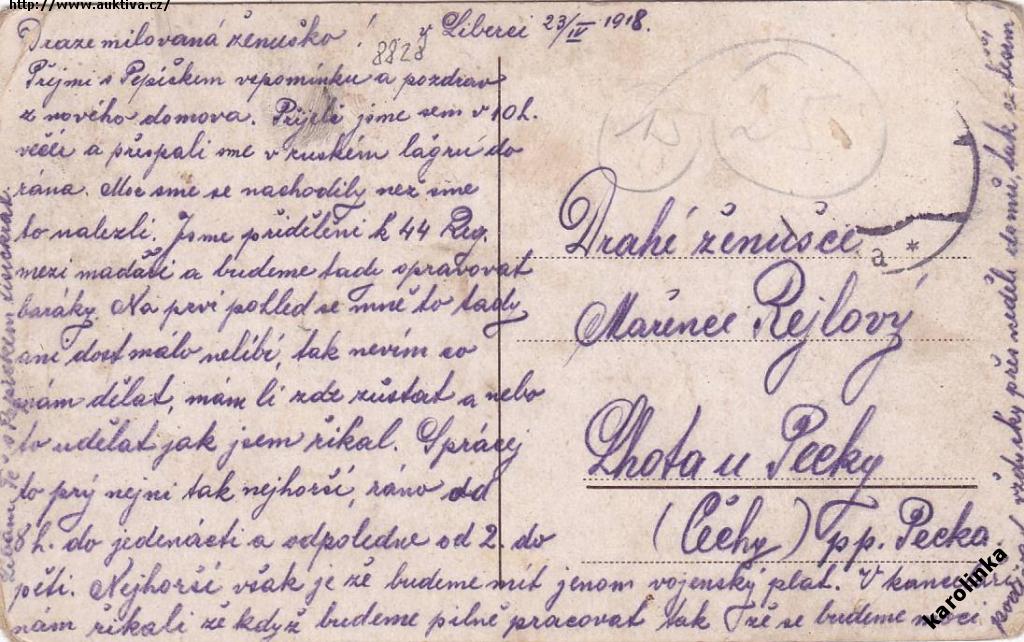 http://www.auktiva.cz/
Draze milovaná ženuško!
v Liberci 23/IV 1918.
8828
Přijmi s Pepíčkem vzpomínku a pozdrav
z nového domova. Přijeli jsme sem v 10 h.
večír a přespali sme v ruském lágrú do
rána. Moc sme se nachodily než sme
to nalezli. Jsme přiděleni k 44 Reg.
mezi maďaři a budeme tady opravovat
baráky. Na prvi pohled se mně to tady
ani dost málo nelíbí, tak nevím co
mám dělat, mám li zde zůstat a nebo
to udělat jak jsem řikal. S prácej
to prý nejni tak nejhorší, ráno od
8 h. do jedenácti a odpoledne od 2. do
pěti. Nejhorší však je že budeme mít jenom vojenský plat. V kanceláři
nám řikali že když budeme pilně pracovat tak že se budeme moci
podívat vždycky přes neděli domů, tak se těším
Líbám Tě s Pepíčkem tisíckrát
15
25
a *
Drahé ženušce
Mařence Rejlový
Lhota u Pecky
(Čěchy) pp. Pecka.
karolinka